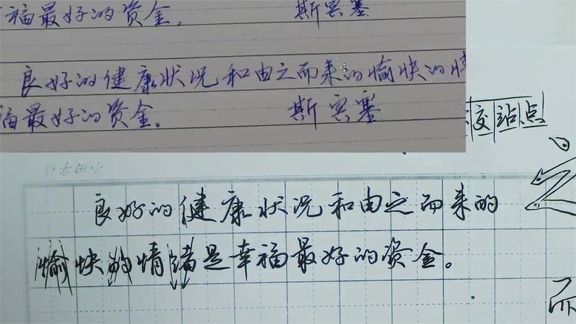 福最好的资金.
斯宾塞
良好的健康状况和由之而来的愉快的情
福最好的资金。
斯宾塞
站点
良好的健康状况和由之而来的
愉快的情绪是幸福最好的资金。